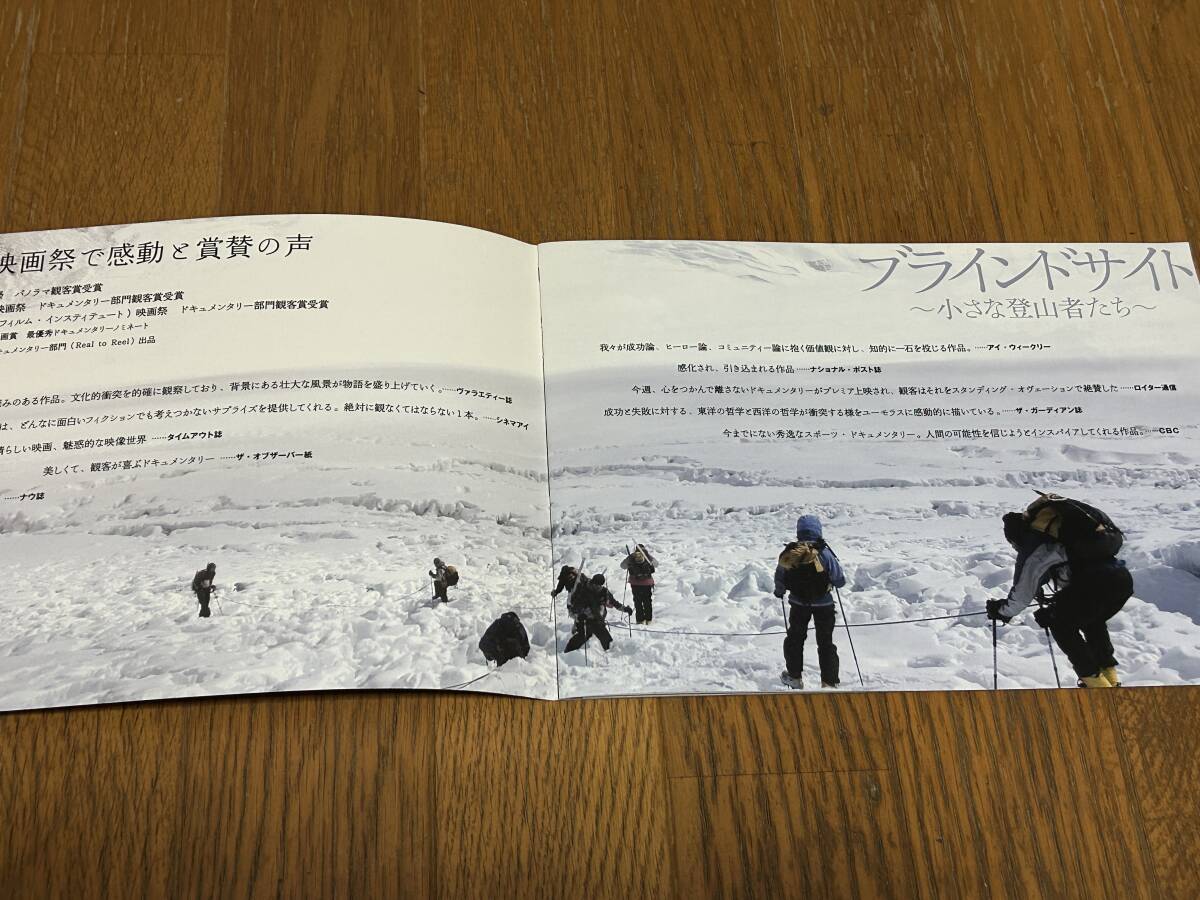 映画祭で感動と賞賛の声
パノラマ観客賞受賞
映画祭 ドキュメンタリー部門観客賞受賞
フィルム・インスティテュート）映画祭 ドキュメンタリー部門観客賞受賞
画賞 最優秀ドキュメンタリーノミネート
ュメンタリー部門（Real to Reel）出品
みのある作品。文化的衝突を的確に観察しており、背景にある壮大な風景が物語を盛り上げていく。……ヴァラエティー誌
は、どんなに面白いフィクションでも考えつかないサプライズを提供してくれる。絶対に観なくてはならない1本。……シネマアイ
晴らしい映画、魅惑的な映像世界 ……タイムアウト誌
美しくて、観客が喜ぶドキュメンタリー ……ザ・オブザーバー紙
……ナウ誌
ブラインドサイト
〜小さな登山者たち〜
我々が成功論、ヒーロー論、コミュニティー論に抱く価値観に対し、知的に一石を投じる作品。……アイ・ウィークリー
感化され、引き込まれる作品……ナショナル・ポスト誌
今週、心をつかんで離さないドキュメンタリーがプレミア上映され、観客はそれをスタンディング・オヴェーションで絶賛した……ロイター通信
成功と失敗に対する、東洋の哲学と西洋の哲学が衝突する様をユーモラスに感動的に描いている。……ザ・ガーディアン誌
今までにない秀逸なスポーツ・ドキュメンタリー。人間の可能性を信じようとインスパイアしてくれる作品。……CBC